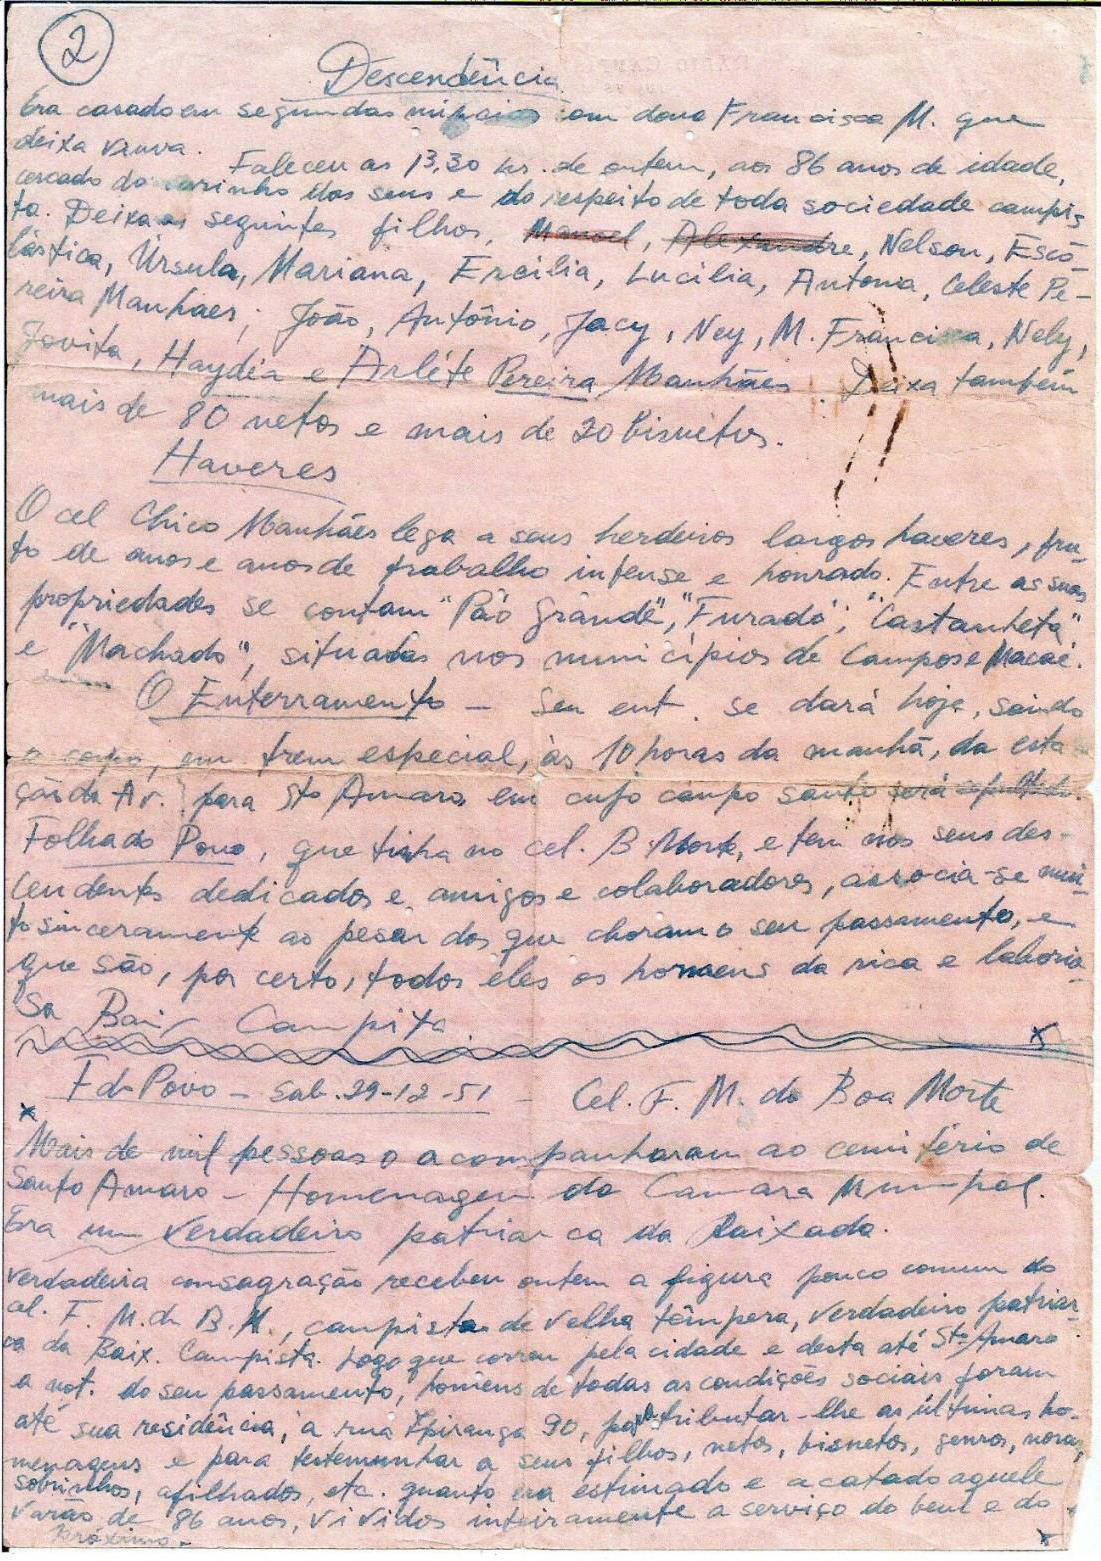 2
Descendência
Era casado em segundas núpcias com dona Francisca M. que
deixa viuva. Faleceu as 13,30 hs. de ontem, aos 86 anos de idade,
cercado do carinho dos seus e do respeito de toda sociedade campis
ta. Deixa os seguintes filhos, Manoel, Alexandre, Nelson, Esco
lástica, Úrsula, Mariana, Ercilia, Lucilia, Antonia, Celeste Pe-
reira Manhães; João, Antônio, Jacy, Ney, M. Francisca, Nely,
Jovita, Haydéa e Arléte Pereira Manhães. Deixa também
mais de 80 netos e mais de 20 bisnetos.
Haveres
O cel Chico Manhães lega a seus herdeiros largos haveres, fru-
to de anos e anos de trabalho intenso e honrado. Entre as suas
propriedades se contam "Pão Grande", "Furado", "Castanheta",
e "Machado", situadas nos municípios de Campos e Macaé.
O Enterramento — Seu ent. se dará hoje, saindo
o corpo, em trem especial, às 10 horas da manhã, da esta
ção da Av. para Sto Amaro em cujo campo santo será
Folha do Povo, que tinha no cel. B. Morte, e tem nos seus des-
cendentes dedicados e amigos e colaboradores, associa-se mui-
to sinceramente ao pesar dos que choram o seu passamento, e
que são, por certo, todos eles os homens da rica e laborio-
sa Baix Campista
x
F do Povo — Sab. 29-12-51 — Cel. F. M. da Boa Morte
x
Mais de mil pessoas o acompanharam ao cemitério de
Santo Amaro — Homenagem da Camara Municipal.
Era um verdadeiro patriarca da Baixada.
Verdadeira consagração recebeu ontem a figura pouco comum do
cel. F. M. da B. M., campista de velha têmpera, verdadeiro patriar
ca da Baix. Campista. Logo que correu pela cidade e desta até Sto Amaro
a not. do seu passamento, homens de todas as condições sociais foram
até sua residência, à rua Ipiranga 90, para tributar-lhe as últimas ho-
menagens e para testemunhar a seus filhos, netos, bisnetos, genros, noras,
sobrinhos, afilhados, etc. quanto era estimado e acatado aquele
varão de 86 anos, vividos inteiramente a serviço do bem e do
próximo.
x